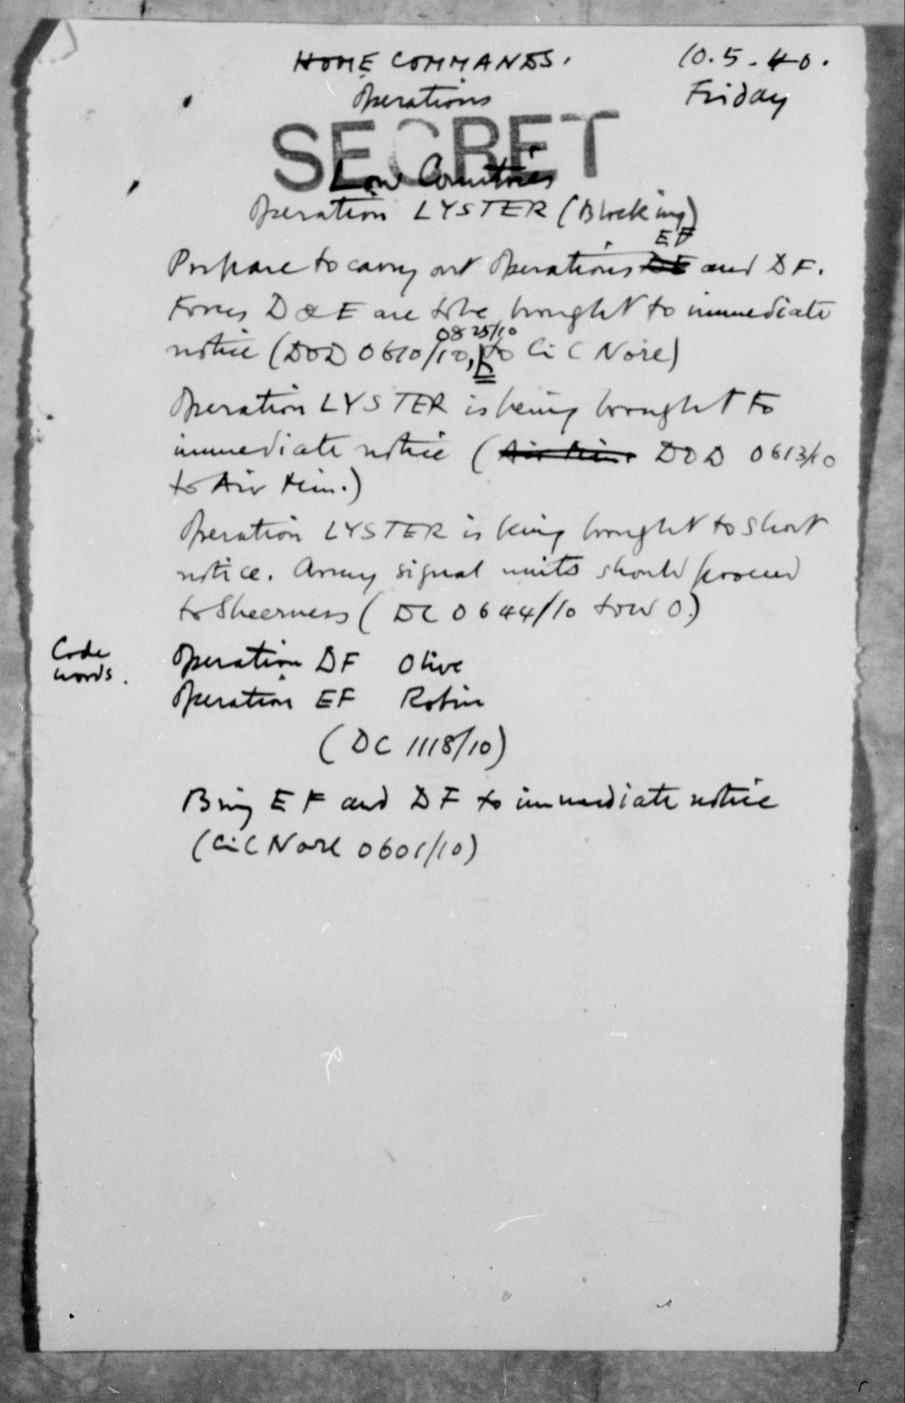 HOME COMMANDS. 10.5.40.
Operations Friday
SECRET
Low Countries
Operation LYSTER (Blocking)
EF
Prepare to carry out Operations DF and DF.
Forces D & E are to be brought to immediate
0825/10
notice (DOD 0610/10, to CiC Nore)
Operation LYSTER is being brought to
immediate notice (Air Min. DOD 0613/10
to Air Min.)
Operation LYSTER is being brought to short
notice. Army signal units should proceed
to Sheerness (DC 0644/10 to W O.)
Code
words.
Operation DF Olive
Operation EF Robin
(DC 1118/10)
Bring EF and DF to immediate notice
(CiC Nore 0601/10)